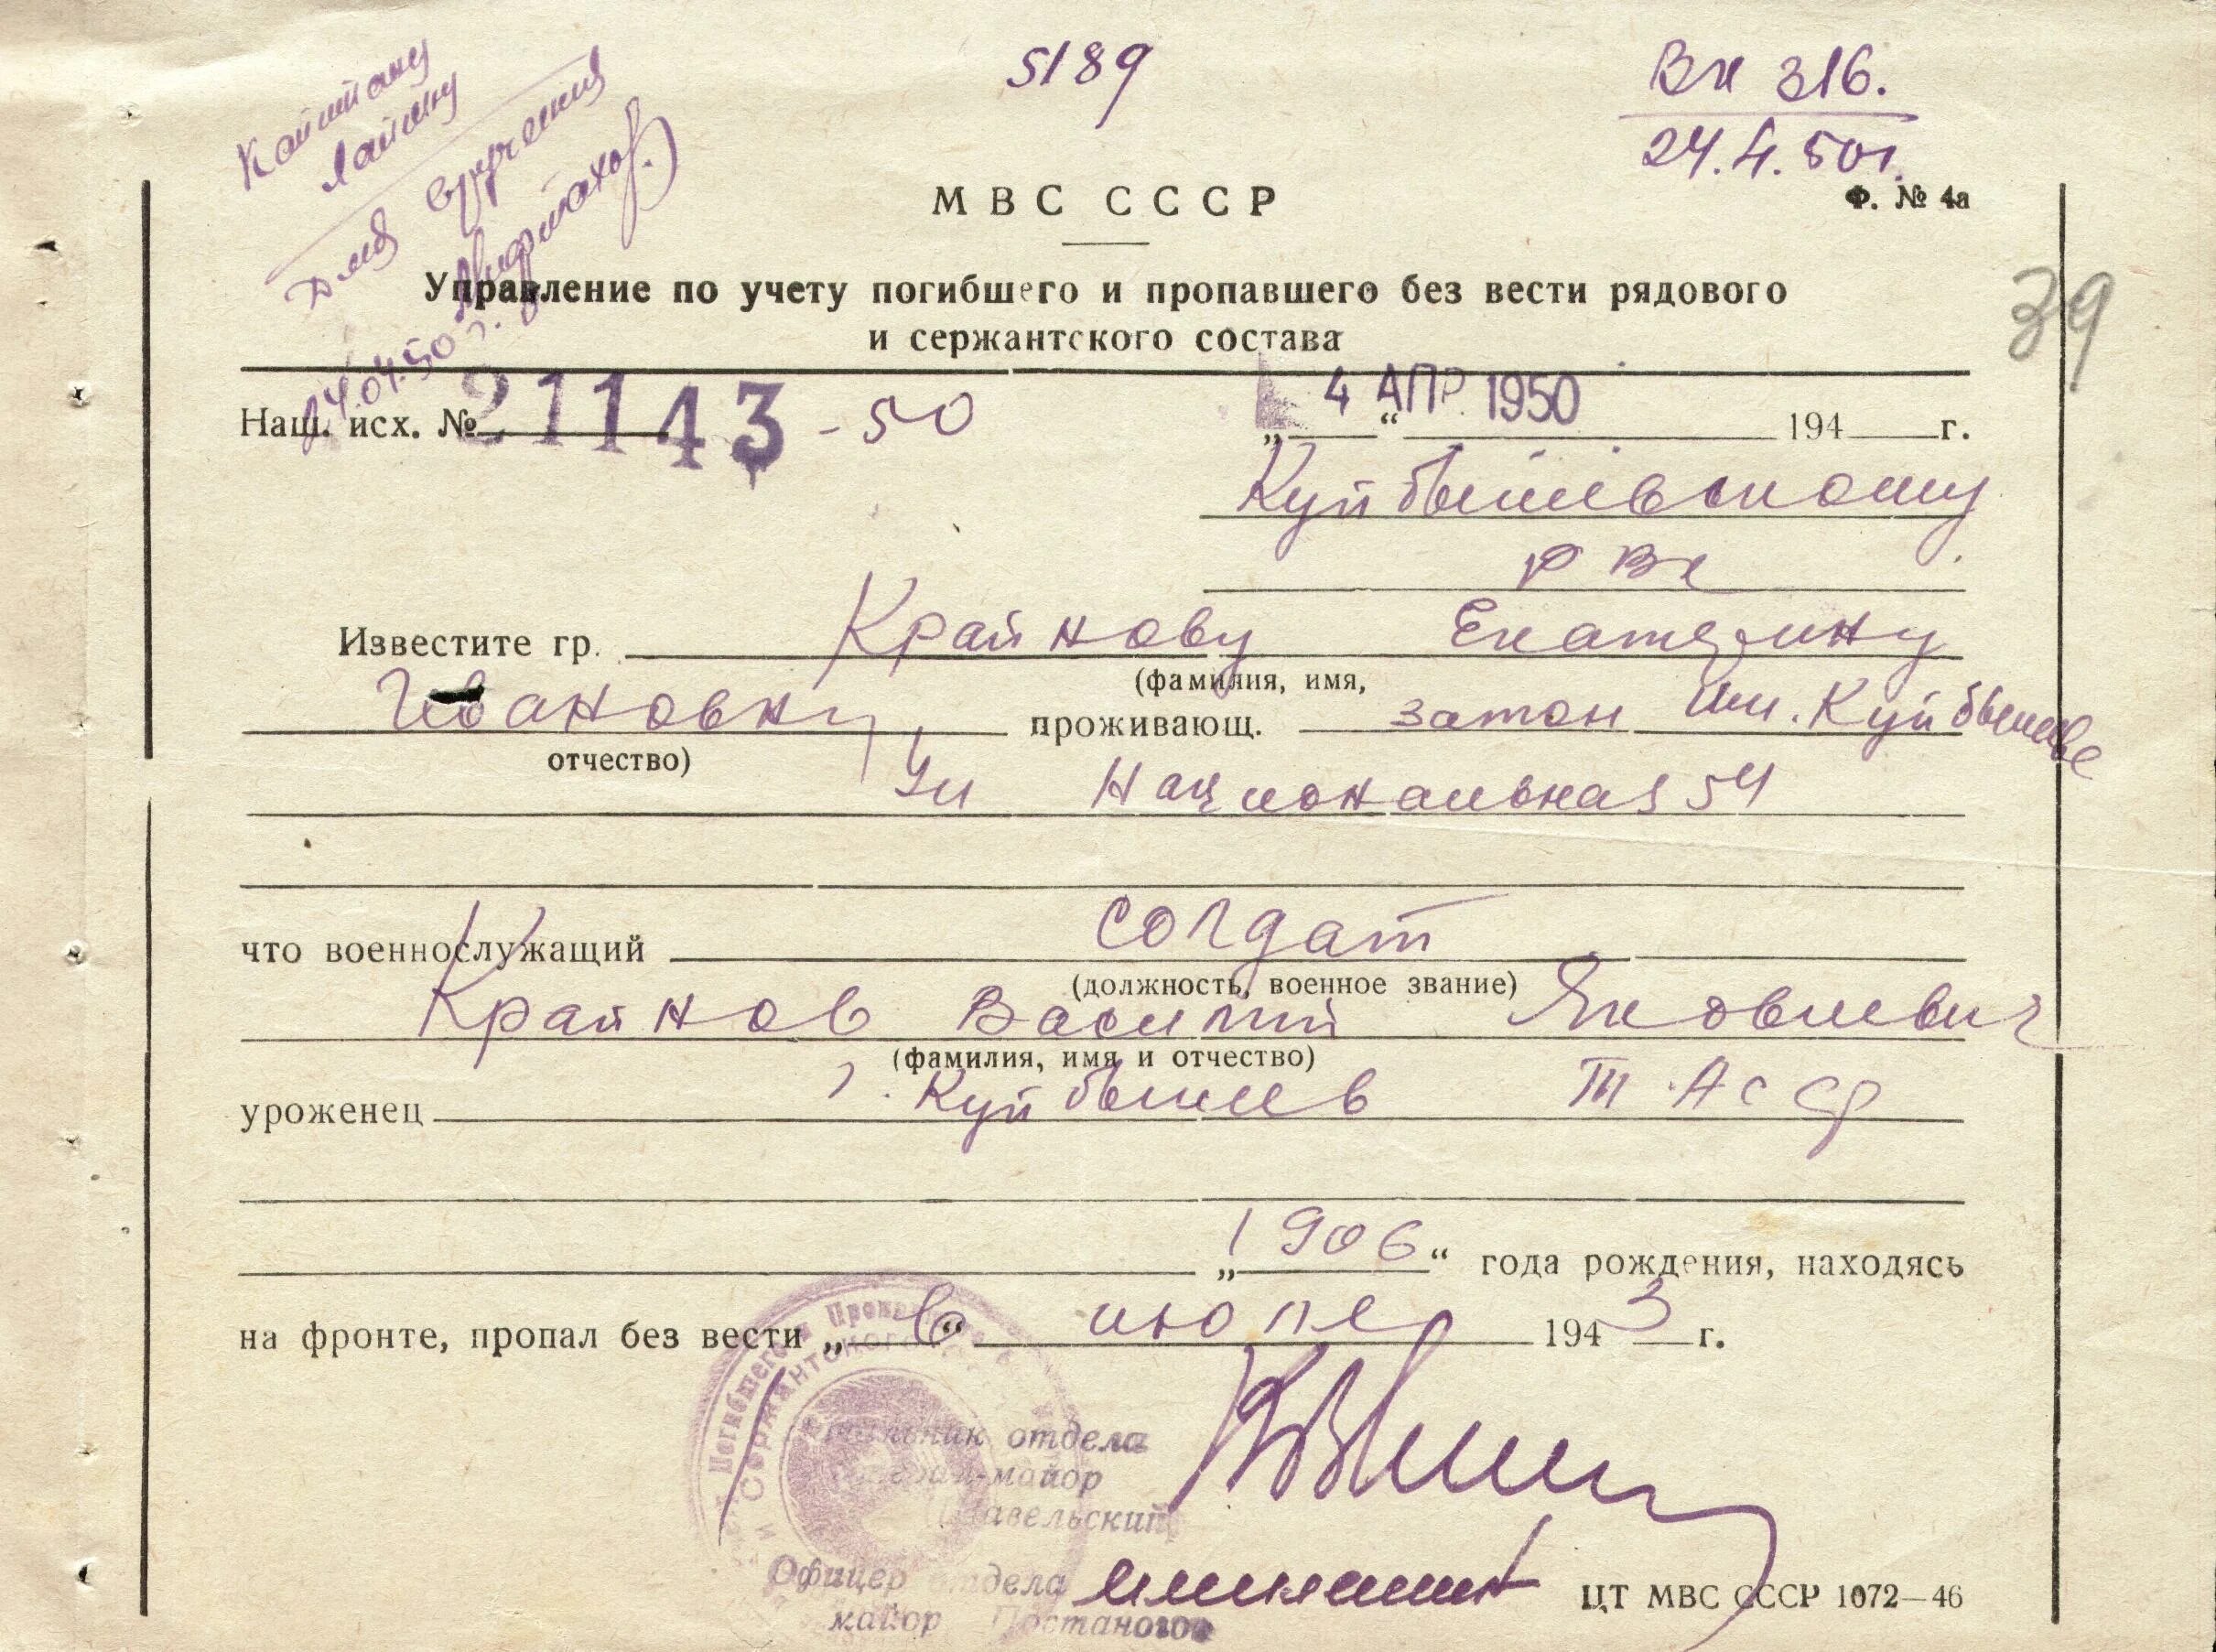 5189
Вх 316.
24.4.50г.
Капитану
для вручения
24.04.50 г.
МВС СССР
Ф. № 4а
39
Управление по учету погибшего и пропавшего без вести рядового
и сержантского состава
Наш. исх. № 21143 - 50
„ 4 “ АПР. 1950 194 г.
Куйбышевскому
РВК
Известите гр. Крайнову Екатерину
(фамилия, имя,
Ивановну проживающ. затон им. Куйбышева
отчество)
Ул Национальная 54
что военнослужащий солдат
(должность, военное звание)
Крайнов Василий Яковлевич
(фамилия, имя и отчество)
уроженец г. Куйбышев ТАССР
„1906“ года рождения, находясь
на фронте, пропал без вести „в“ июле 1943 г.
Погибшего и Пропавшего
и Сержантского
Начальник отдела
генерал-майор
Офицер отдела
майор
ЦТ МВС СССР 1072—46